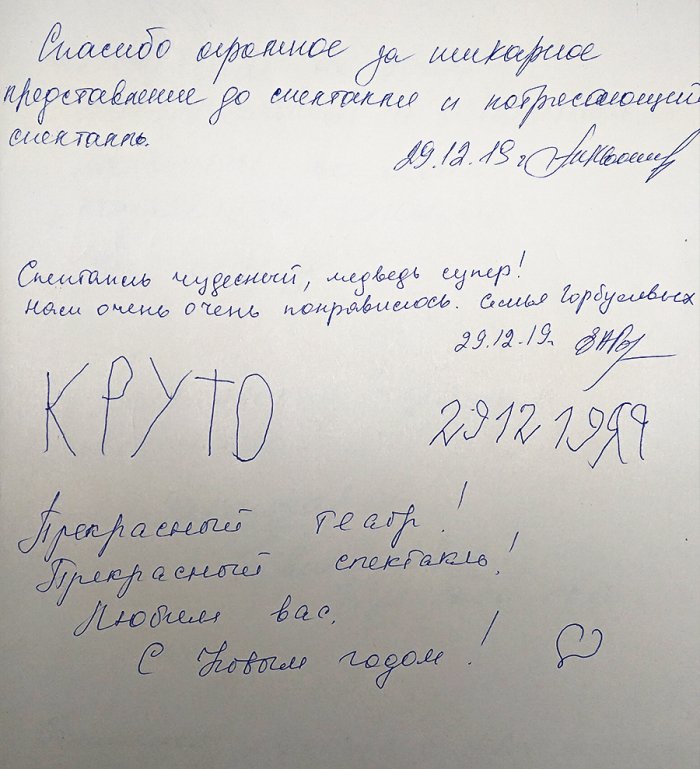 Спасибо огромное за шикарное
представление до спектакля и потрясающий
спектакль.
29.12.19 г
Спектакль чудесный, медведь супер!
Нам очень очень понравилось. Семья Горбуневых
29.12.19г.
КРУТО 29 12 19
Прекрасный театр!
Прекрасный спектакль!
Любим вас.
С Новым годом!